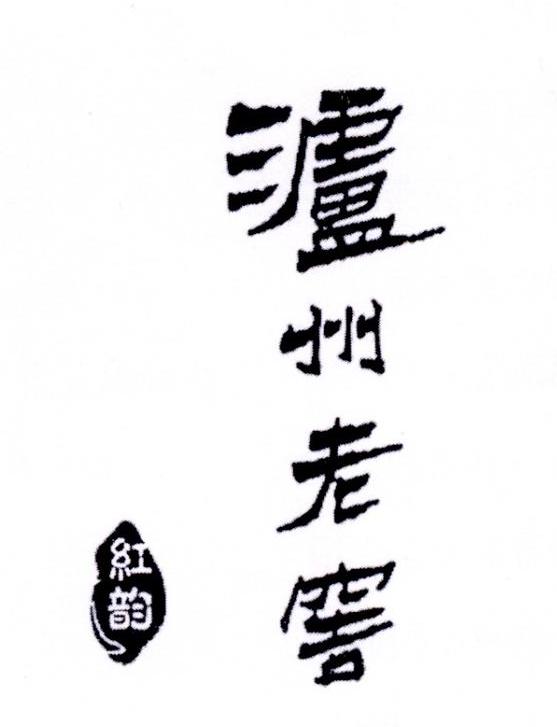 瀘州老窖
紅韵